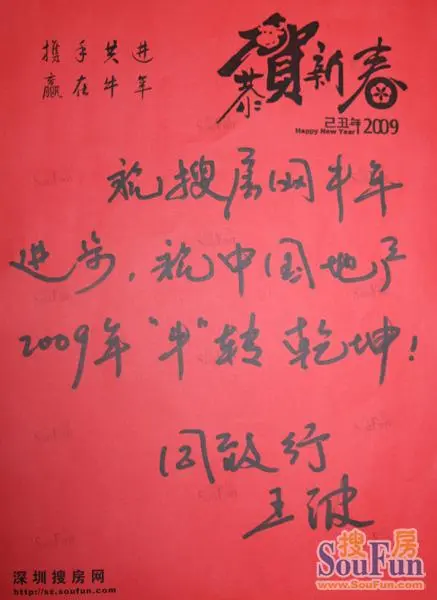 携手共进
赢在牛年
恭贺新春
己丑年
Happy New Year! 2009
祝搜房网牛年
进步，祝中国地产
2009年“牛”转乾坤！
同致行
王波
深圳搜房网
http://sz.soufun.com
搜房
SouFun
www.SouFun.com